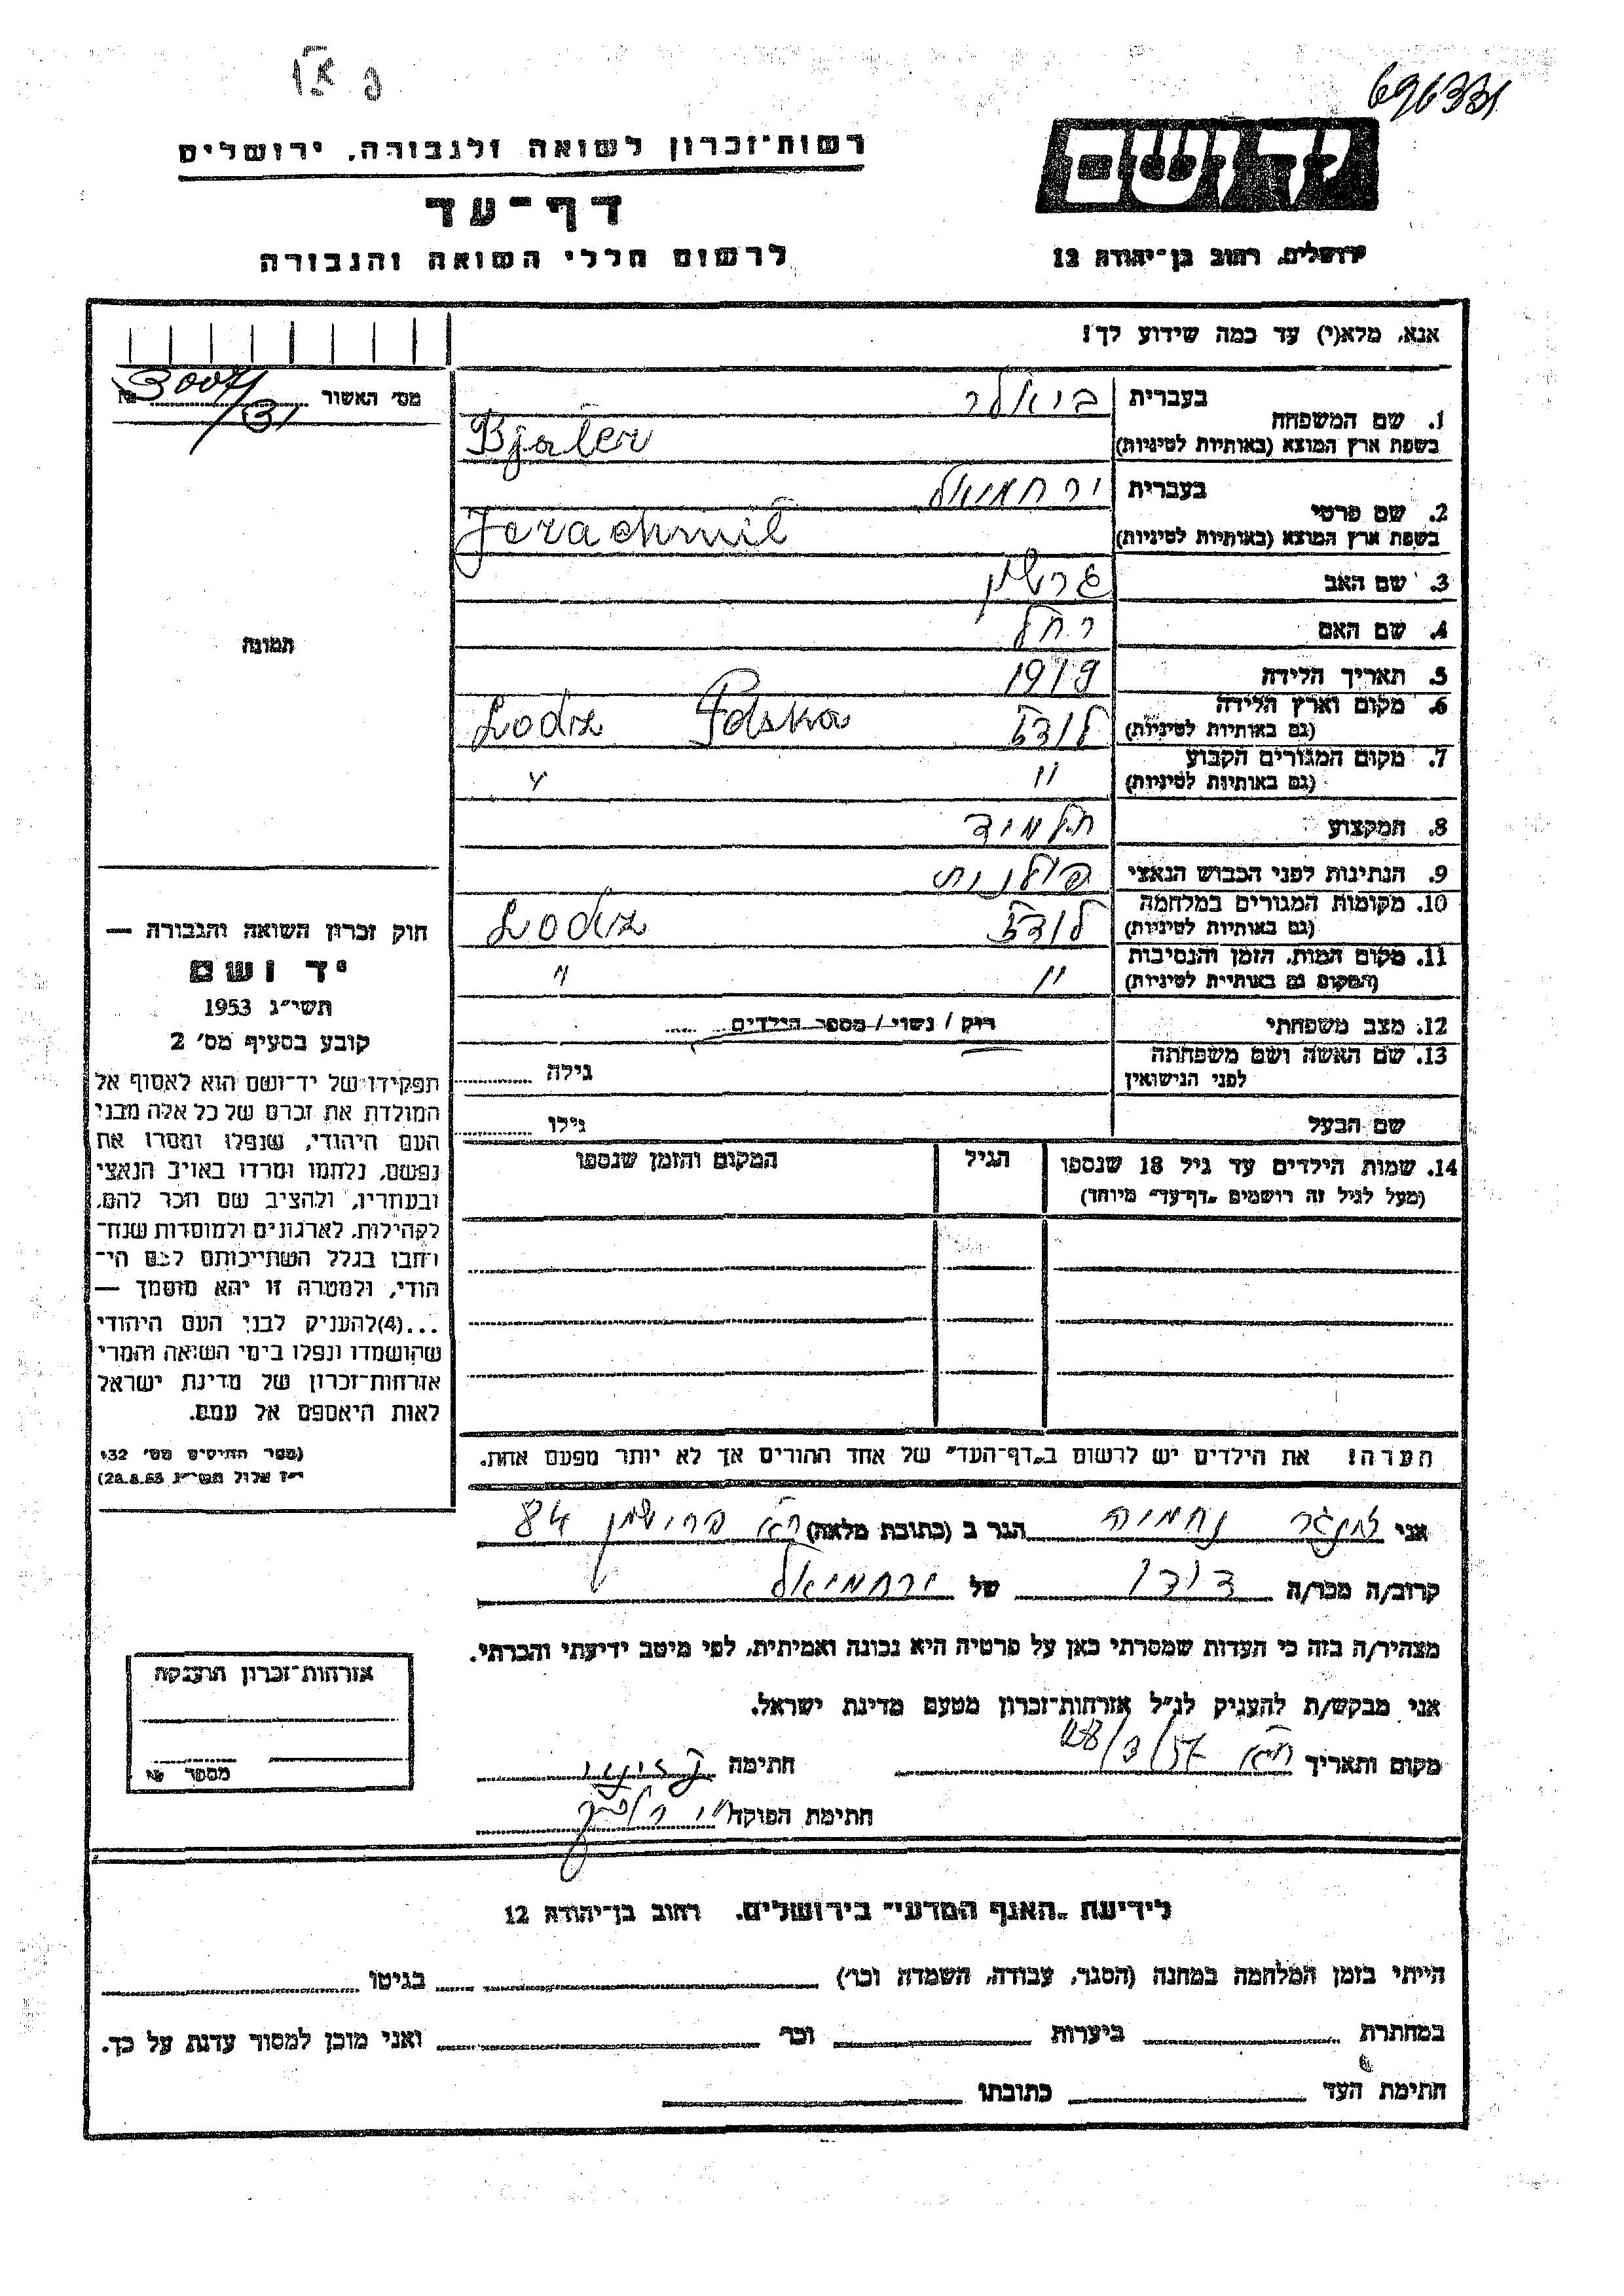 696331
רשות־זכרון לשואה ולגבורה, ירושלים
יד ושם
דף־עד
לרשום חללי השואה והגבורה
ירושלים, רחוב בן־יהודה 12
אנא, מלא(י) עד כמה שידוע לך!
מס׳ האשור
1. שם המשפחה
בעברית ביאלר
בשפת ארץ המוצא (באותיות לטיניות) Bjaler
2. שם פרטי
בעברית ירחמיאל
בשפת ארץ המוצא (באותיות לטיניות) Jerachmil
3. שם האב גרשון
4. שם האם רחל
5. תאריך הלידה 1919
6. מקום וארץ הלידה לודז Lodz Polska
(גם באותיות לטיניות)
7. מקום המגורים הקבוע " "
(גם באותיות לטיניות)
8. המקצוע תלמיד
9. הנתינות לפני הכבוש הנאצי פולנית
10. מקומות המגורים במלחמה לודז Lodz
(גם באותיות לטיניות)
11. מקום המות, הזמן והנסיבות " "
(המקום גם באותיות לטיניות)
12. מצב משפחתי רוק / נשוי / מספר הילדים
13. שם האשה ושם משפחתה גילה
לפני הנישואין
שם הבעל גילו
14. שמות הילדים עד גיל 18 שנספו הגיל המקום והזמן שנספו
(מעל לגיל זה רושמים „דף־עד״ מיוחד)
הערה! את הילדים יש לרשום ב„דף־העד״ של אחד ההורים אך לא יותר מפעם אחת.
תמונה
חוק זכרון השואה והגבורה —
יד ושם
תשי״ג 1953
קובע בסעיף מס׳ 2
תפקידו של יד־ושם הוא לאסוף אל
המולדת את זכרם של כל אלה מבני
העם היהודי, שנפלו ומסרו את
נפשם, נלחמו ומרדו באויב הנאצי
ובעוזריו, ולהציב שם וזכר להם,
לקהילות, לארגונים ולמוסדות שנח־
רבו בגלל השתייכותם לעם הי־
הודי, ולמטרה זו יהא מוסמך —
...(4) להעניק לבני העם היהודי
שהושמדו ונפלו בימי השואה והמרי
אזרחות־זכרון של מדינת ישראל
לאות היאספם אל עמם.
(ספר החוקים מס׳ 132
י״ז אלול תשי״ג 28.8.53)
אני זינגר נחמיה הגר ב (כתובת מלאה) ת״א פרישמן 84
קרוב/ה מכר/ה דודו של ירחמיאל
מצהיר/ה בזה כי העדות שמסרתי כאן על פרטיה היא נכונה ואמיתית, לפי מיטב ידיעתי והכרתי.
אני מבקש/ת להעניק לנ״ל אזרחות־זכרון מטעם מדינת ישראל.
מקום ותאריך ת״א חתימה
חתימת הפוקד
אזרחות־זכרון הוענקה
מספר №
לידיעת „האגף המדעי״ בירושלים, רחוב בן־יהודה 12
הייתי בזמן המלחמה במחנה (הסגר, עבודה, השמדה וכו׳) בגיטו
במחתרת ביערות וכו׳ ואני מוכן למסור עדות על כך.
חתימת העד כתובתו